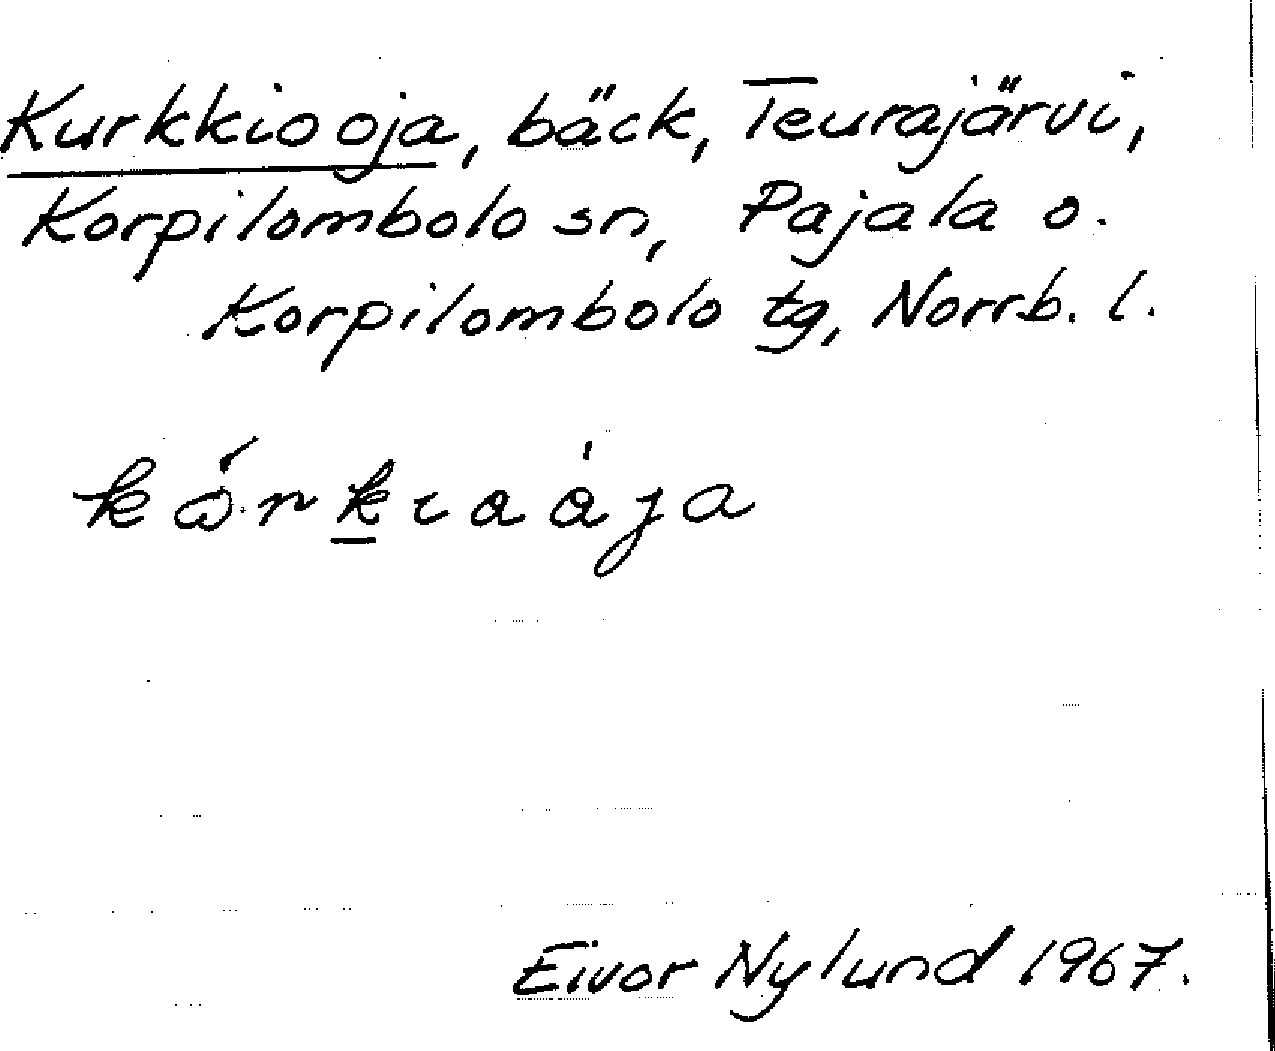 Kurkkiooja, bäck, Teurajärvi,
Korpilombolo sn, Pajala o.
Korpilombolo tg, Norrb. l.
Eivor Nylund 1967.